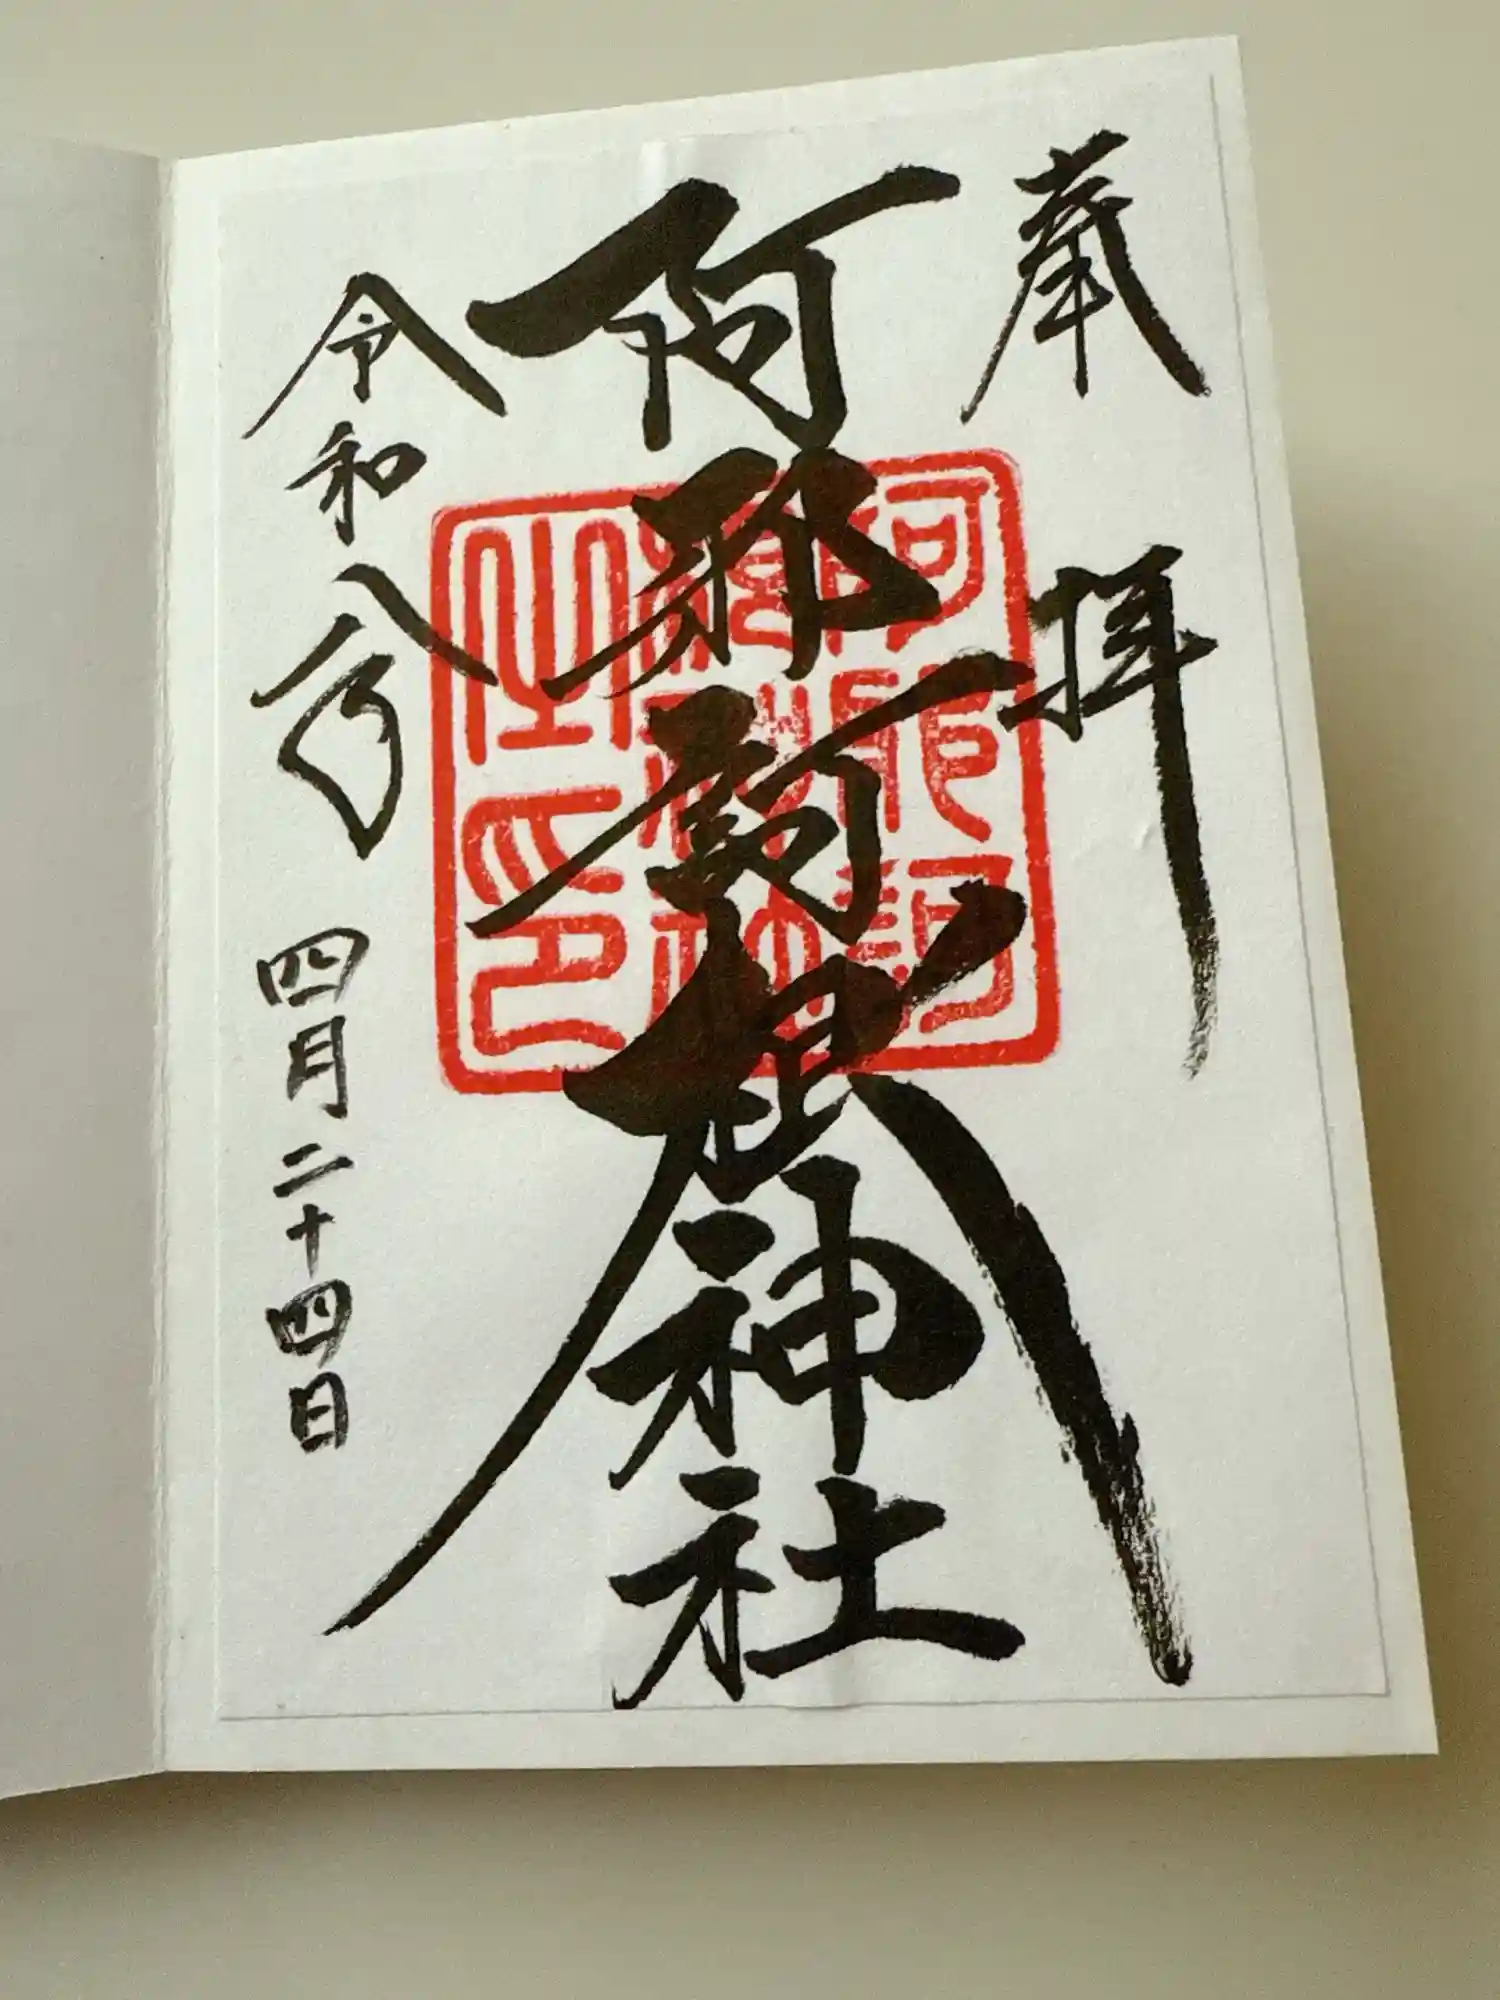 奉拝
阿邪訶根神社
令和八年四月二十四日
阿邪訶
根神社
之印